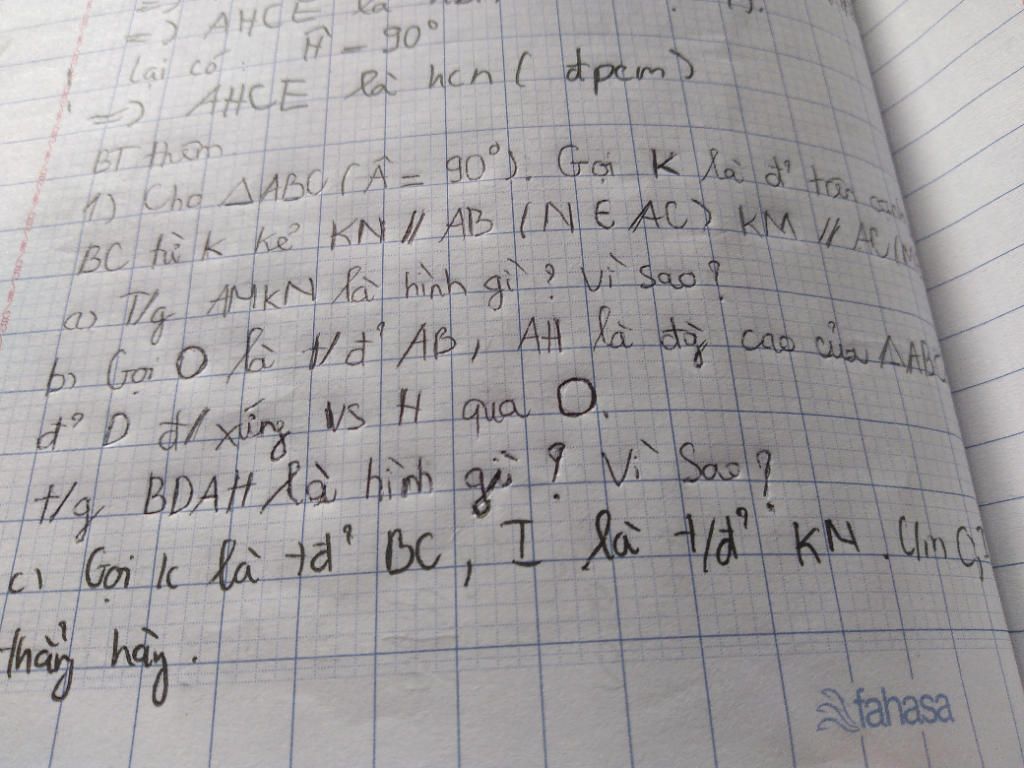 =) AHCE là
lại có Ĥ = 90°
=) AHCE là hcn ( đpcm )
BT thêm
1) Cho △ABC ( Â = 90°). Gọi K là đ' trên cạnh
BC từ K kẻ KN // AB ( N ∈ AC ) KM // AC
a) T/g AMKN là hình gì ? Vì sao ?
b) Gọi O là t/đ' AB, AH là đg cao của △ABC
đ' D đ/xứng vs H qua O.
t/g BDAH là hình gì ? Vì Sao ?
c) Gọi K là tđ' BC, I là t/đ' KN.
thẳng hàng.
fahasa